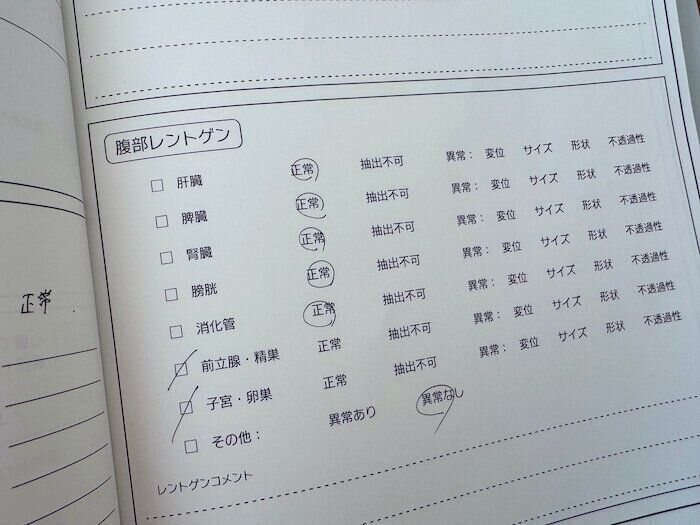 腹部レントゲン
□ 肝臓 正常 抽出不可 異常： 変位 サイズ 形状 不透過性
□ 脾臓 正常 抽出不可 異常： 変位 サイズ 形状 不透過性
□ 腎臓 正常 抽出不可 異常： 変位 サイズ 形状 不透過性
□ 膀胱 正常 抽出不可 異常： 変位 サイズ 形状 不透過性
□ 消化管 正常 抽出不可 異常： 変位 サイズ 形状 不透過性
□ 前立腺・精巣 正常 抽出不可 異常： 変位 サイズ 形状 不透過性
□ 子宮・卵巣 正常 抽出不可 異常： 変位 サイズ 形状 不透過性
□ その他： 異常あり 異常なし
レントゲンコメント
正常